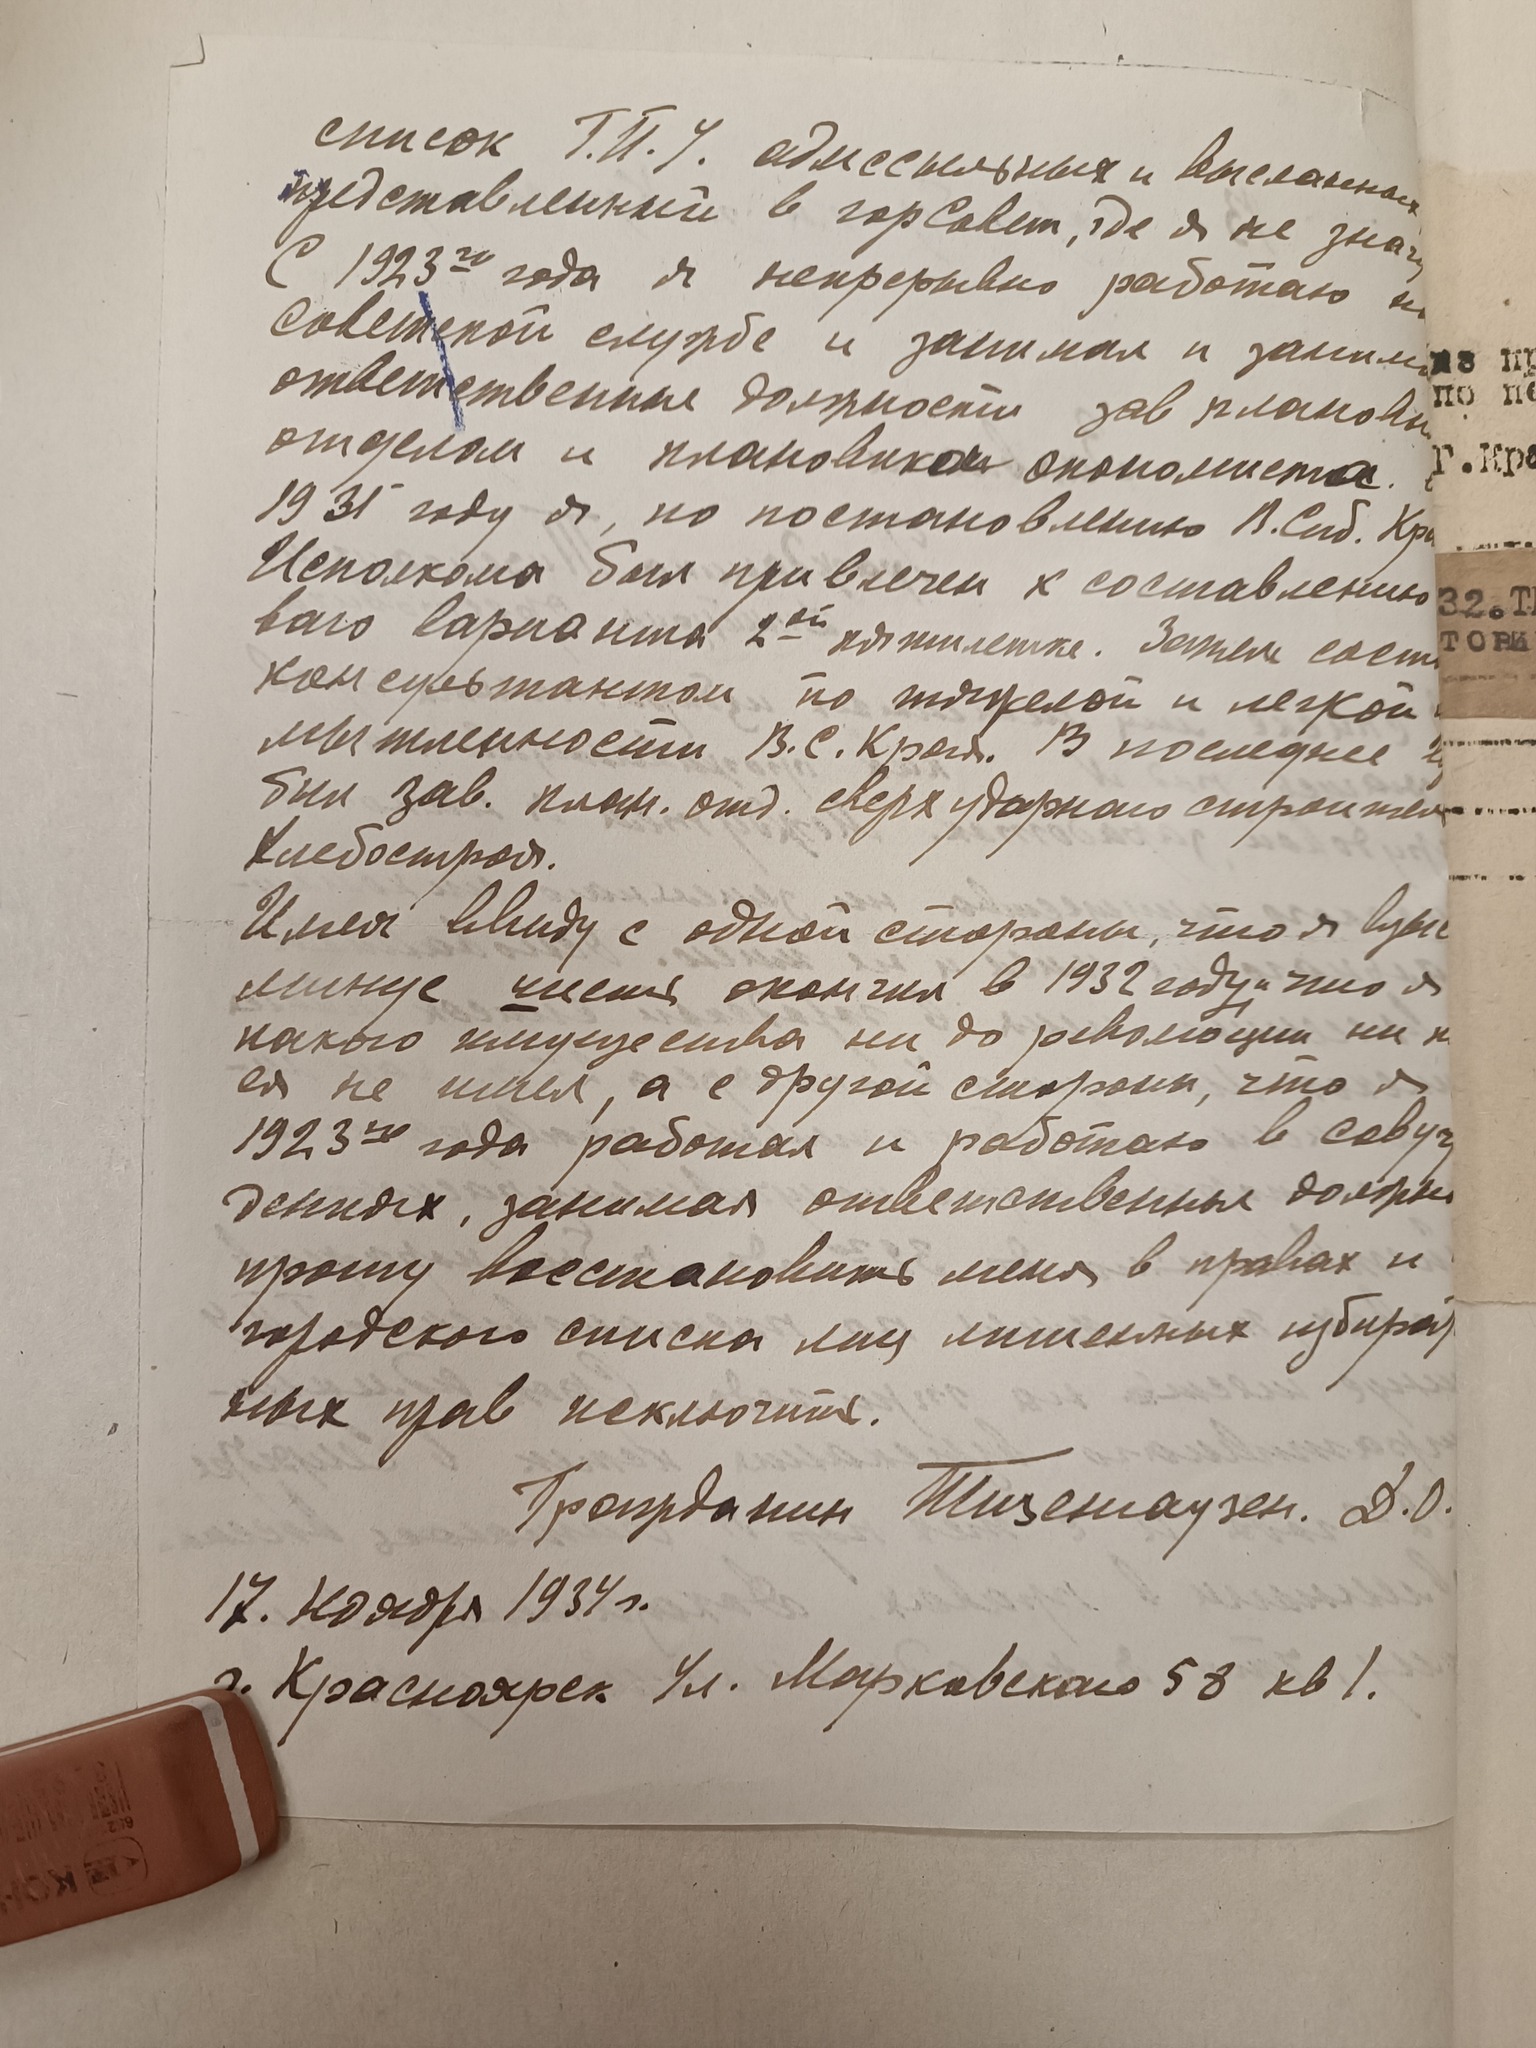 список Г.П.У. адмссыльных и высланных
представленный в горСовет, где я не знач
С 1923го года я непрерывно работаю на
Советской службе и занимал и занима
ответственные должности зав плановы
отделом и плановика экономиста.
1931 году я, по постановлению В.Сиб. Кра
Исполкома был привлечен к составлению
ваго варианта 2ой пятилетке. Затем сост
консультантом по тяжелой и легкой
мышленности В.С.Края. В последнее
был зав. план. отд. сверхударного строител
Хлебостроя.
Имея ввиду с одной стороны, что я
минус шесть окончил в 1932 году и что я
какого имущества ни до революции ни
ея не имел, а с другой стороны, что я
1923го года работал и работаю в совуч
дениях, занимая ответственные должн
прошу восстановить меня в правах и
городского списка лиц лишенных избират
ных прав исключить.
Гражданин Тизенгаузен. Д.О.
17. Ноября 1934 г.
г. Красноярск Ул. Марковского 58 кв 1.
из пр
по пе
г.Кра
32.ТИ
ТОРЫ
КОН